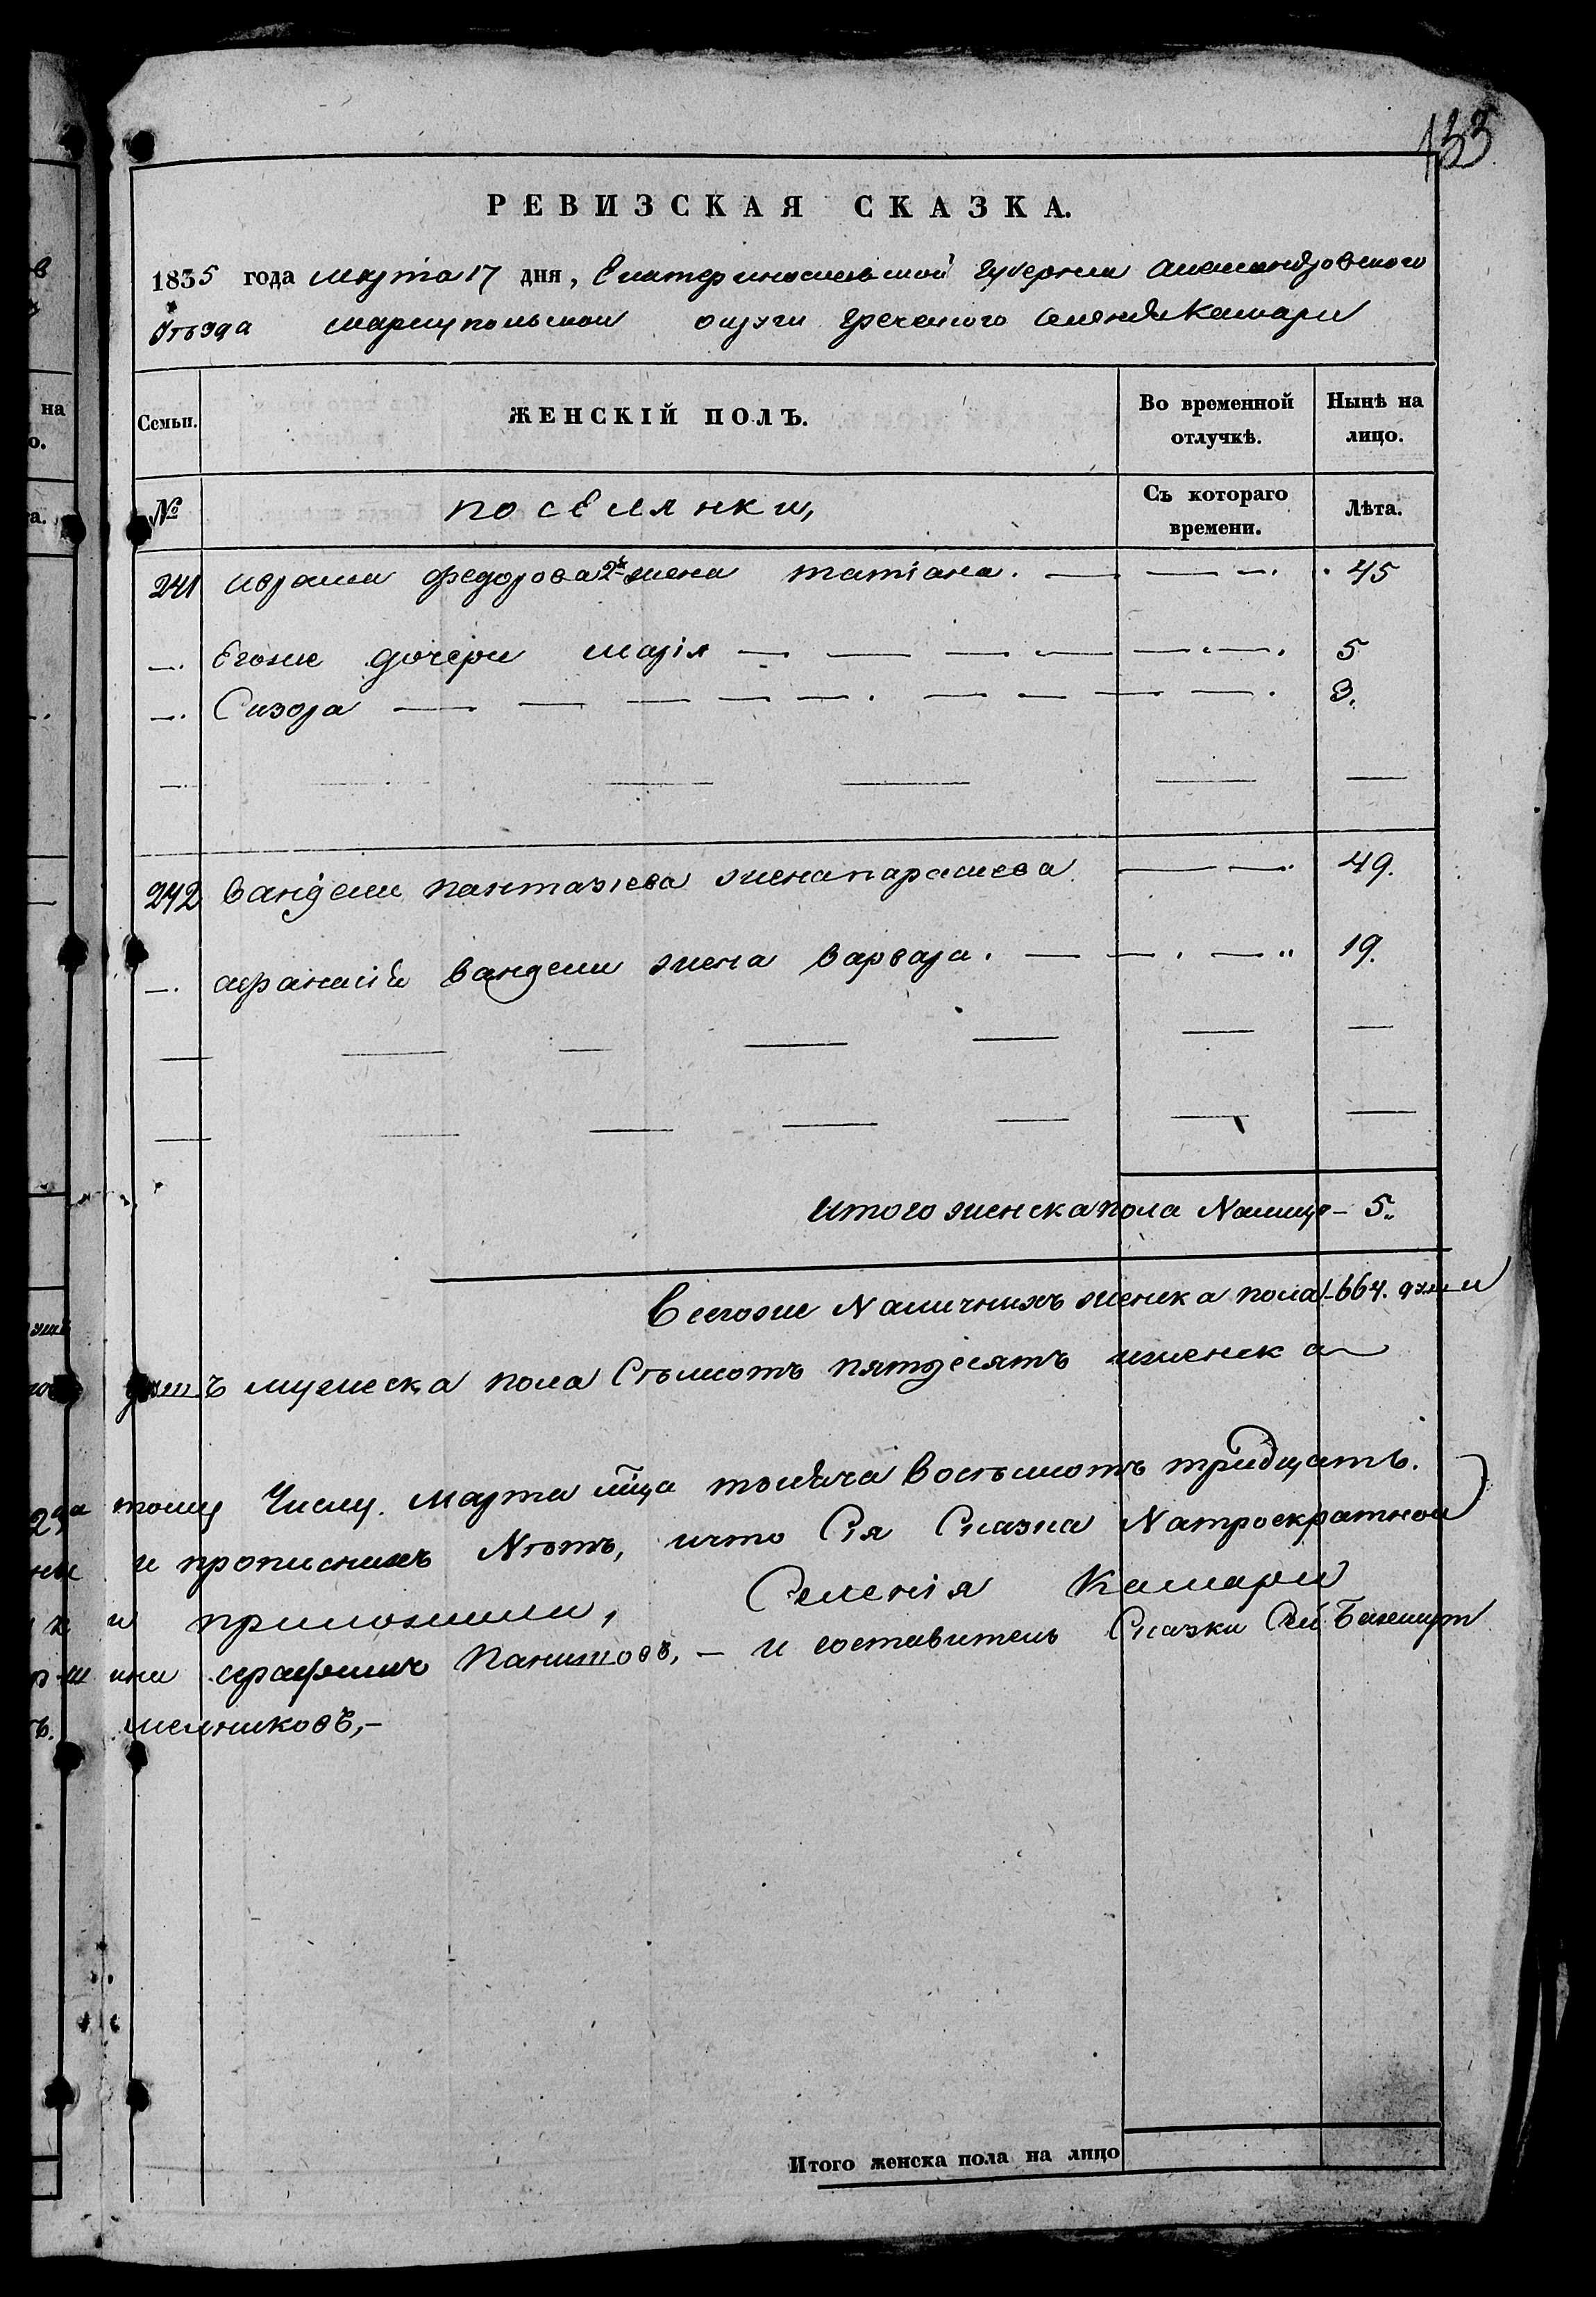 133
РЕВИЗСКАЯ СКАЗКА.
1835 года марта 17 дня, Екатериносльвской губернии Александровского
Уѣзда мариупольской округи греческого селения Камари
Семьи. ЖЕНСКІЙ ПОЛЪ. Во временной отлучкѣ. Нынѣ на лицо.
№ поселянки, Съ котораго времени. Лѣта.
241 Федорова 2я жена татіана. 45
—. Егоже дочери марія 5
—. Сизора 3.
242 вандели пантазіева жена парасшева 49.
—. афанасій вандели жена варвара. 19.
итого женска пола Налицо — 5.
Всегоже Наличнихъ женска пола 664. души
душъ мужеска пола Съмсотъ пятдесятъ иженска
тому Числу. марта мца тысяча Восѣмсотъ тридцать.
и прописнихъ Нѣтъ, ичто Сія Сказка Натроекратной
и приложили, Селенія Камари
Панитовъ, — и составитель Сказки Сей
мельниковъ,—
Итого женска пола на лицо